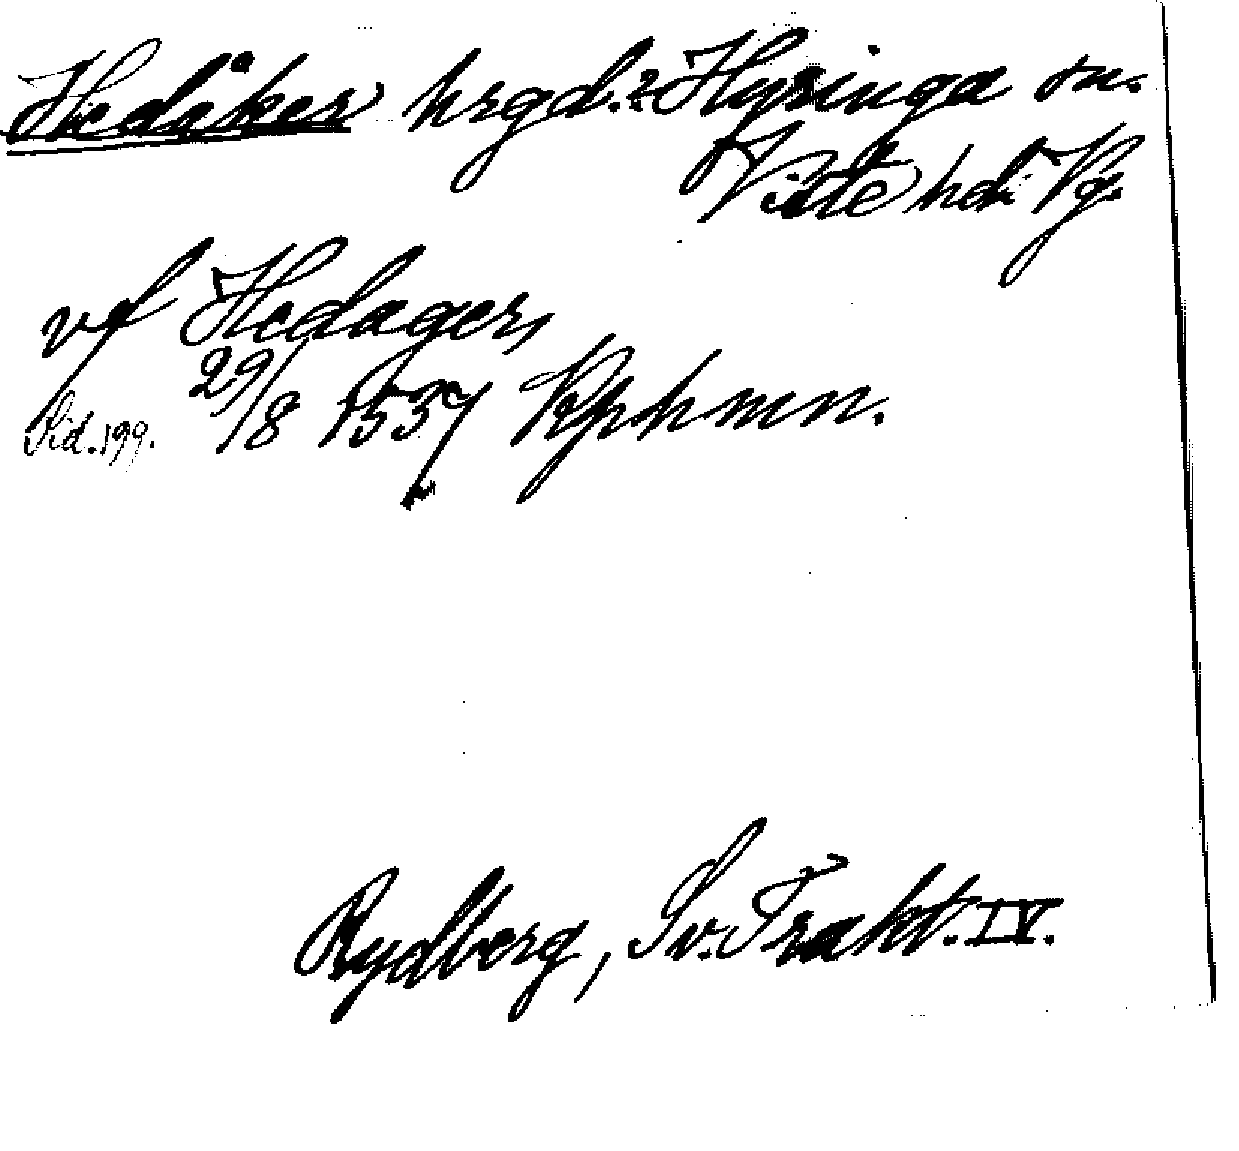 Hedåker hrgd.? Hyringa sn.
Viste hd. Vg.
vf Hedager,
29/8 1537 Kphmn.
Sid. 199.
Rydberg, Sv. Trakt. IV.